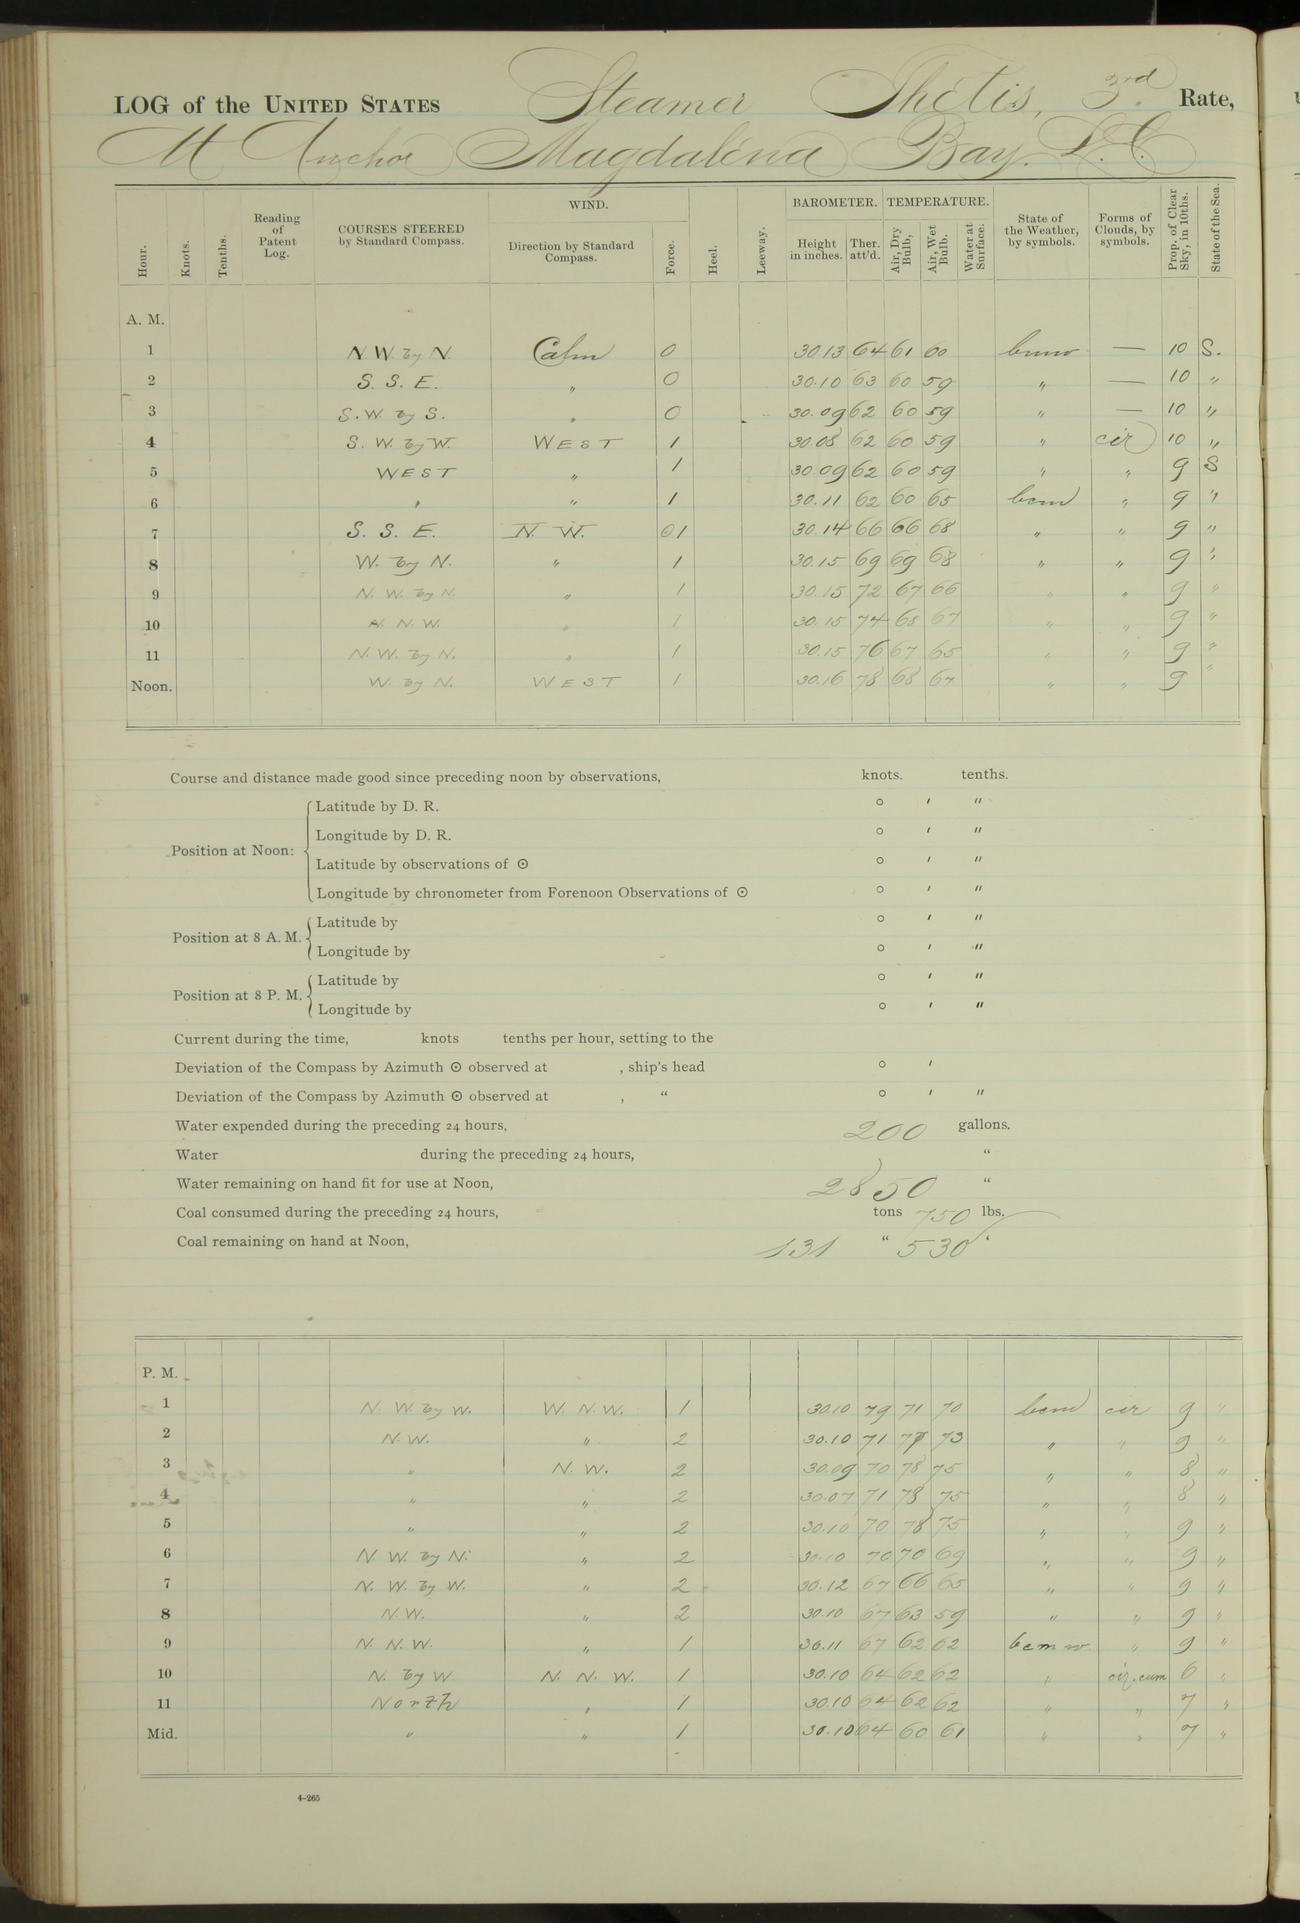 LOG of the UNITED STATES Steamer Thetis, 3rd Rate,
At Anchor Magdalena Bay. L. C.
Hour. Knots. Tenths. Reading of Patent Log. COURSES STEERED by Standard Compass. WIND. Direction by Standard Compass. Force. Heel. Leeway. BAROMETER. Height in inches. Ther. att'd. TEMPERATURE. Air, Dry Bulb, Air, Wet Bulb. Water at Surface. State of the Weather, by symbols. Forms of Clouds, by symbols. Prop. of Clear Sky, in 10ths. State of the Sea.
A. M.
1 N. W. by N. Calm 0 30.13 64 61 60 — 10 S.
2 S. S. E. " 0 30.10 63 60 59 " — 10 "
3 S. W. by S. " 0 30.09 62 60 59 " — 10 "
4 S. W. by W. WEST 1 30.08 62 60 59 " cir 10 "
5 WEST " 1 30.09 62 60 59 " " 9 S
6 " " 1 30.11 62 60 65 bcm " 9 "
7 S. S. E. N. W. 01 30.14 66 66 68 " " 9 "
8 W. by N. " 1 30.15 69 69 68 " " 9 "
9 N. W. by N. " 1 30.15 72 67 66 " " 9 "
10 N. N. W. " 1 30.15 74 68 67 " " 9 "
11 N. W. by N. " 1 30.15 76 67 65 " " 9 "
Noon. W. by N. WEST 1 30.16 78 68 67 " " 9 "
Course and distance made good since preceding noon by observations, knots. tenths.
Position at Noon: Latitude by D. R. ° ′ ″
Longitude by D. R. ° ′ ″
Latitude by observations of ☉ ° ′ ″
Longitude by chronometer from Forenoon Observations of ☉ ° ′ ″
Position at 8 A. M. Latitude by ° ′ ″
Longitude by ° ′ ″
Position at 8 P. M. Latitude by ° ′ ″
Longitude by ° ′ ″
Current during the time, knots tenths per hour, setting to the
Deviation of the Compass by Azimuth ☉ observed at , ship's head ° ′
Deviation of the Compass by Azimuth ☉ observed at , “ ° ′ ″
Water expended during the preceding 24 hours, 200 gallons.
Water during the preceding 24 hours, “
Water remaining on hand fit for use at Noon, 2850 “
Coal consumed during the preceding 24 hours, tons 750 lbs.
Coal remaining on hand at Noon, 131 “ 530 “
P. M.
1 N. W. by W. W. N. W. 1 30.10 79 71 70 bcm cir 9 "
2 N. W. " 2 30.10 71 77 73 " " 9 "
3 " N. W. 2 30.09 70 78 75 " " 8 "
4 " " 2 30.07 71 78 75 " " 8 "
5 " " 2 30.10 70 78 75 " " 9 "
6 N. W. by N. " 2 30.10 70 70 69 " " 9 "
7 N. W. by W. " 2 30.12 67 66 65 " " 9 "
8 N. W. " 2 30.10 67 63 59 " " 9 "
9 N. N. W. " 1 30.11 67 62 62 bcmw " 9 "
10 N. by W N. N. W. 1 30.10 64 62 62 " cir. cum 6 "
11 North " 1 30.10 64 62 62 " " 7 "
Mid. " " 1 30.10 64 60 61 " " 7 "
4–265